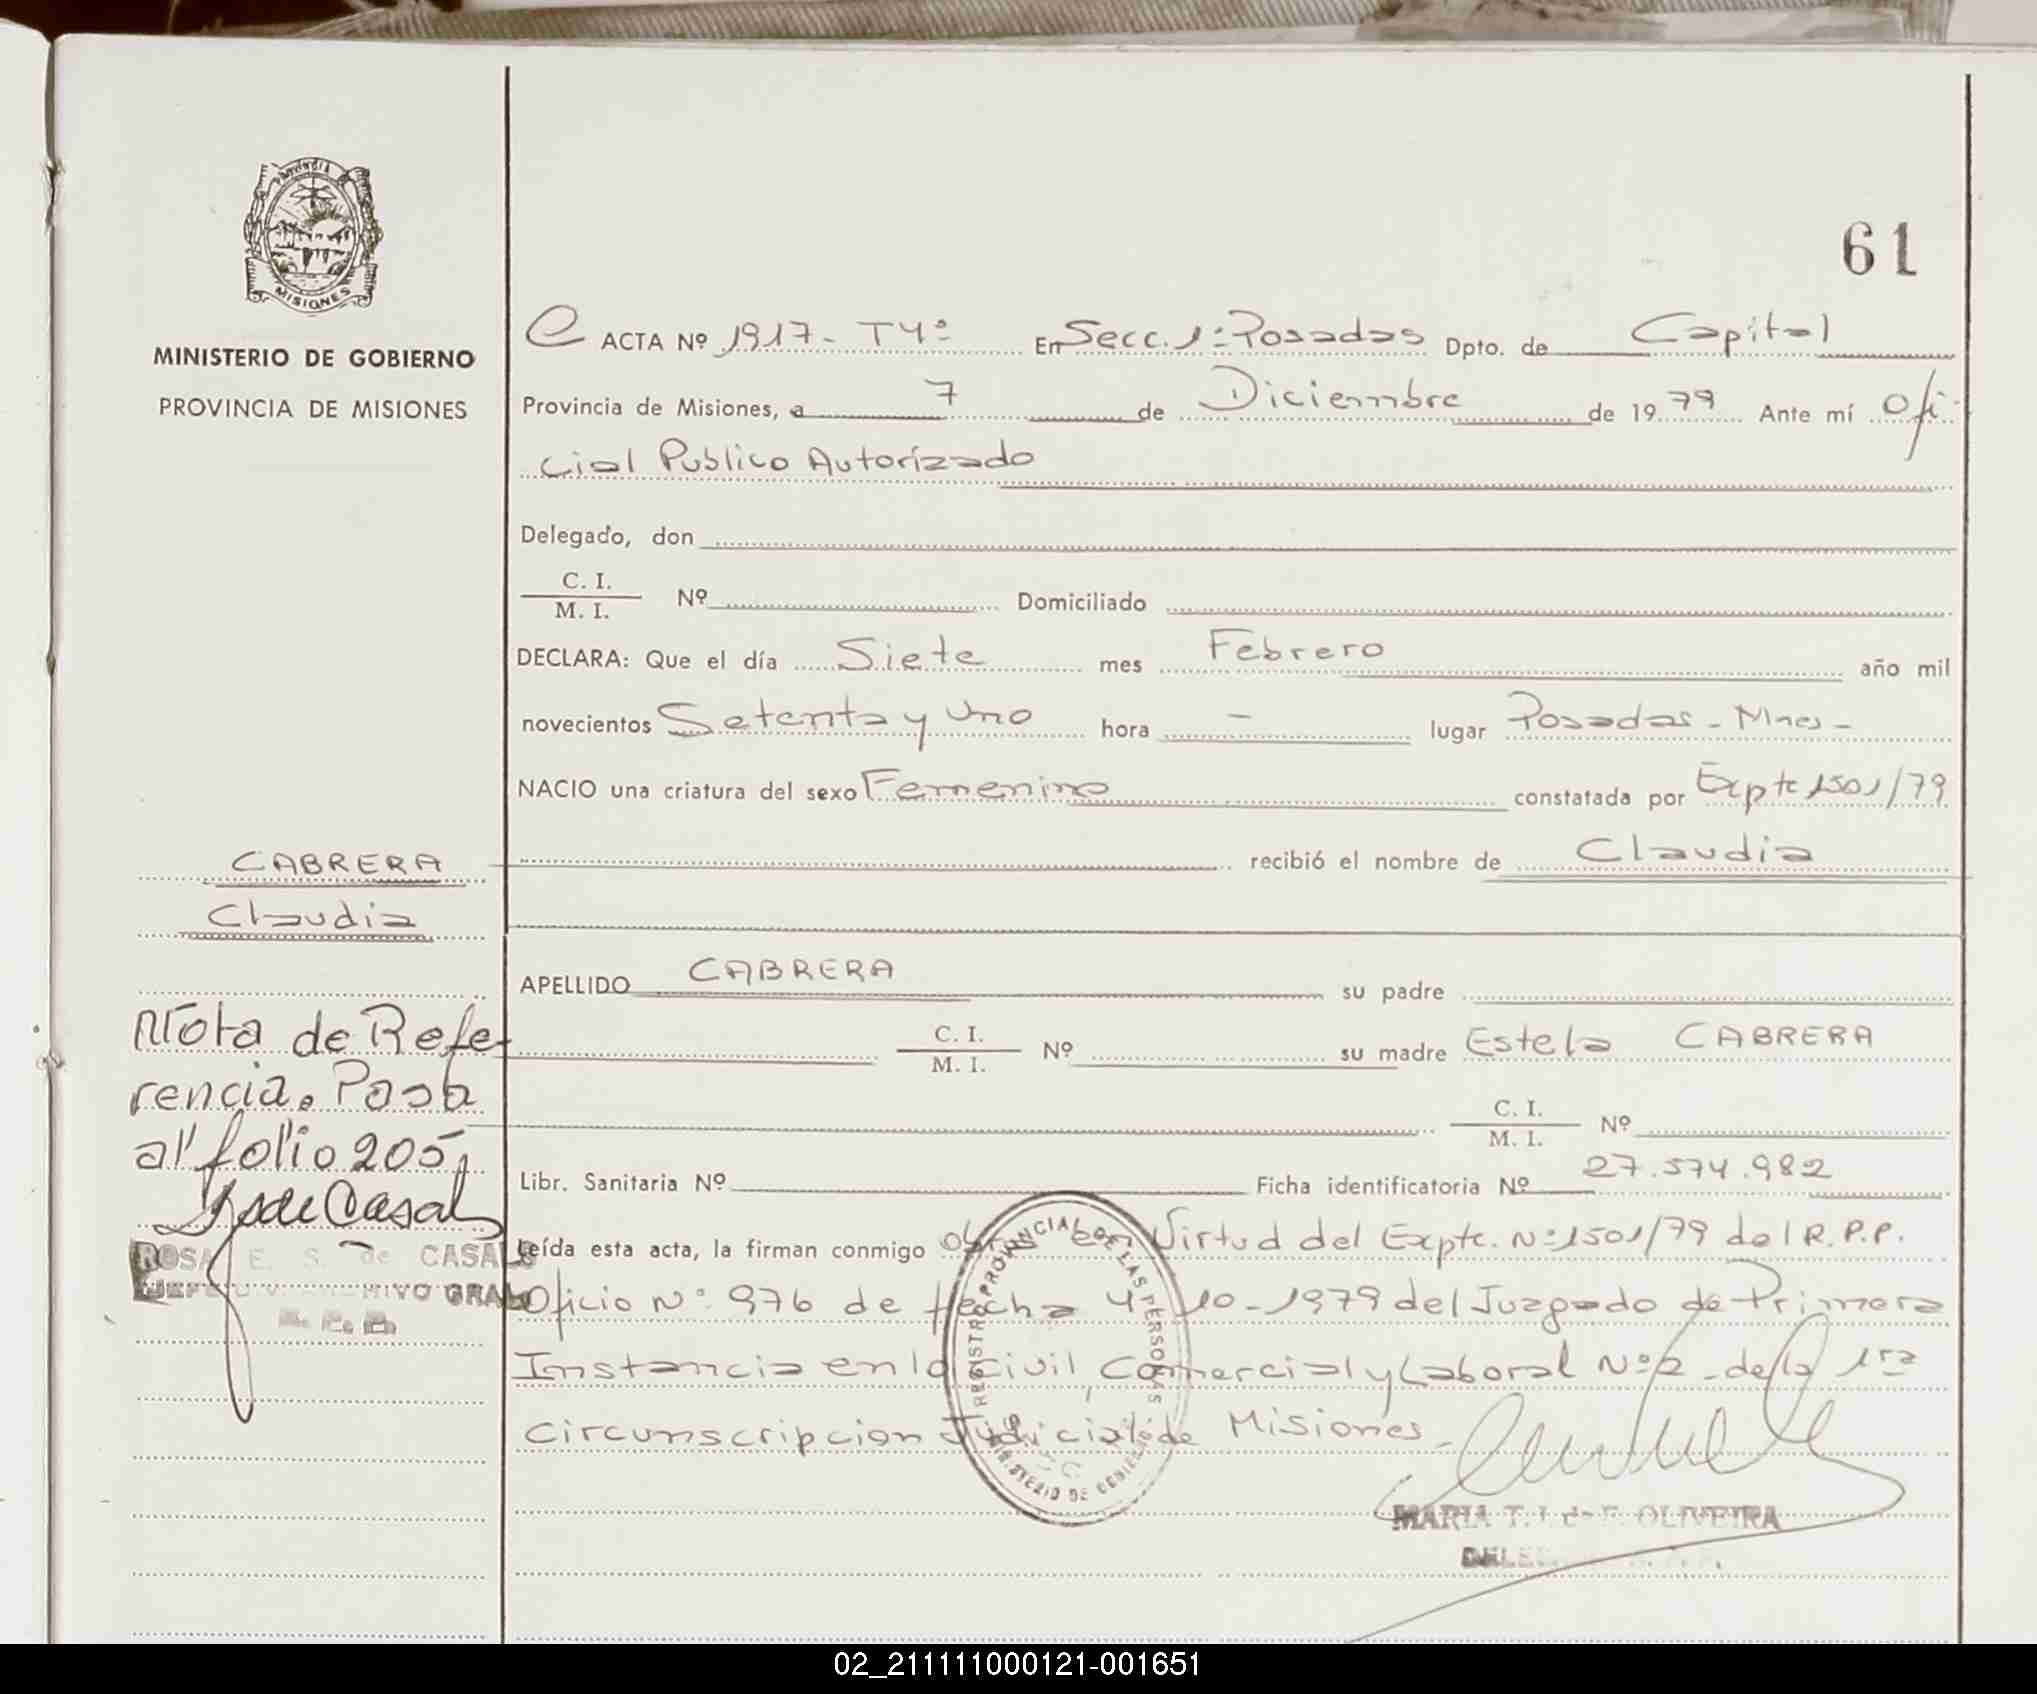 PROVINCIA
MISIONES
MINISTERIO DE GOBIERNO
PROVINCIA DE MISIONES
61
ACTA Nº 1917- T4º En Secc. 1ª Posadas Dpto. de Capital
Provincia de Misiones, a 7 de Diciembre de 1979 Ante mí Ofi-
cial Publico Autorizado
Delegado, don
C. I.
M. I. Nº Domiciliado
DECLARA: Que el día Siete mes Febrero año mil
novecientos Setenta y Uno hora - lugar Posadas - Mnes -
NACIO una criatura del sexo Femenino constatada por Expte 1501/79
recibió el nombre de Claudia
CABRERA
Claudia
APELLIDO CABRERA su padre
C. I.
M. I. Nº su madre Estela CABRERA
C. I.
M. I. Nº
Libr. Sanitaria Nº Ficha identificatoria Nº 27.574.982
Leída esta acta, la firman conmigo obra en Virtud del Expte. Nº 1501/79 del R.P.P.
Oficio Nº 976 de fecha 4-10-1979 del Juzgado de Primera
Instancia en lo Civil, Comercial y Laboral Nº 2 - de la 1ra
Circunscripcion Judicial de Misiones -
Nota de Refe-
rencia. Pasa
al folio 205
R S de Casals
ROSA E. S. de CASALS
JEFE ARCHIVO GRAL
R. P. P.
REGISTRO PROVINCIAL DE LAS PERSONAS
MINISTERIO DE GOBIERNO
MARIA T. I. de F. OLIVEIRA
02_211111000121-001651